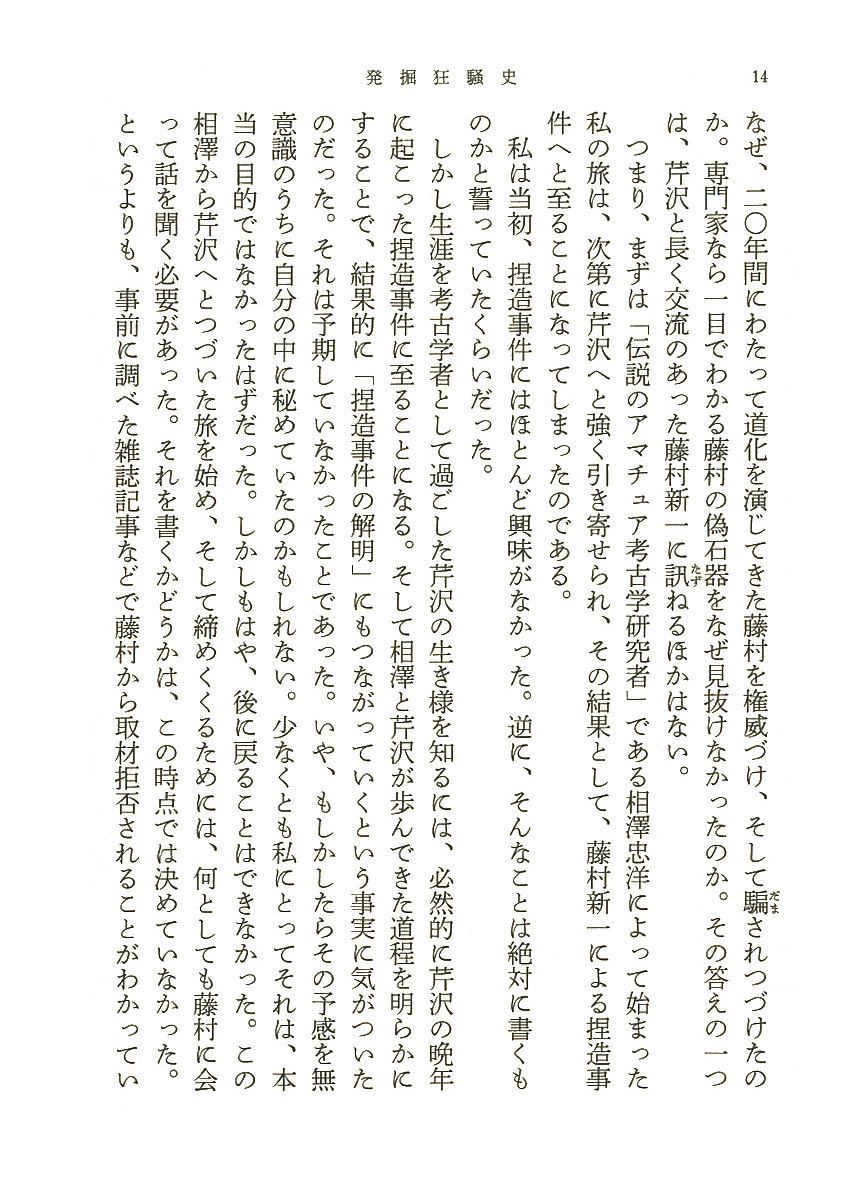 発掘狂騒史
14
なぜ、二〇年間にわたって道化を演じてきた藤村を権威づけ、そして騙されつづけたの
か。専門家なら一目でわかる藤村の偽石器をなぜ見抜けなかったのか。その答えの一つ
は、芹沢と長く交流のあった藤村新一に訊ねるほかはない。
つまり、まずは「伝説のアマチュア考古学研究者」である相澤忠洋によって始まった
私の旅は、次第に芹沢へと強く引き寄せられ、その結果として、藤村新一による捏造事
件へと至ることになってしまったのである。
私は当初、捏造事件にはほとんど興味がなかった。逆に、そんなことは絶対に書くも
のかと誓っていたくらいだった。
しかし生涯を考古学者として過ごした芹沢の生き様を知るには、必然的に芹沢の晩年
に起こった捏造事件に至ることになる。そして相澤と芹沢が歩んできた道程を明らかに
することで、結果的に「捏造事件の解明」にもつながっていくという事実に気がついた
のだった。それは予期していなかったことであった。いや、もしかしたらその予感を無
意識のうちに自分の中に秘めていたのかもしれない。少なくとも私にとってそれは、本
当の目的ではなかったはずだった。しかしもはや、後に戻ることはできなかった。この
相澤から芹沢へとつづいた旅を始め、そして締めくくるためには、何としても藤村に会
って話を聞く必要があった。それを書くかどうかは、この時点では決めていなかった。
というよりも、事前に調べた雑誌記事などで藤村から取材拒否されることがわかってい
だま
たず